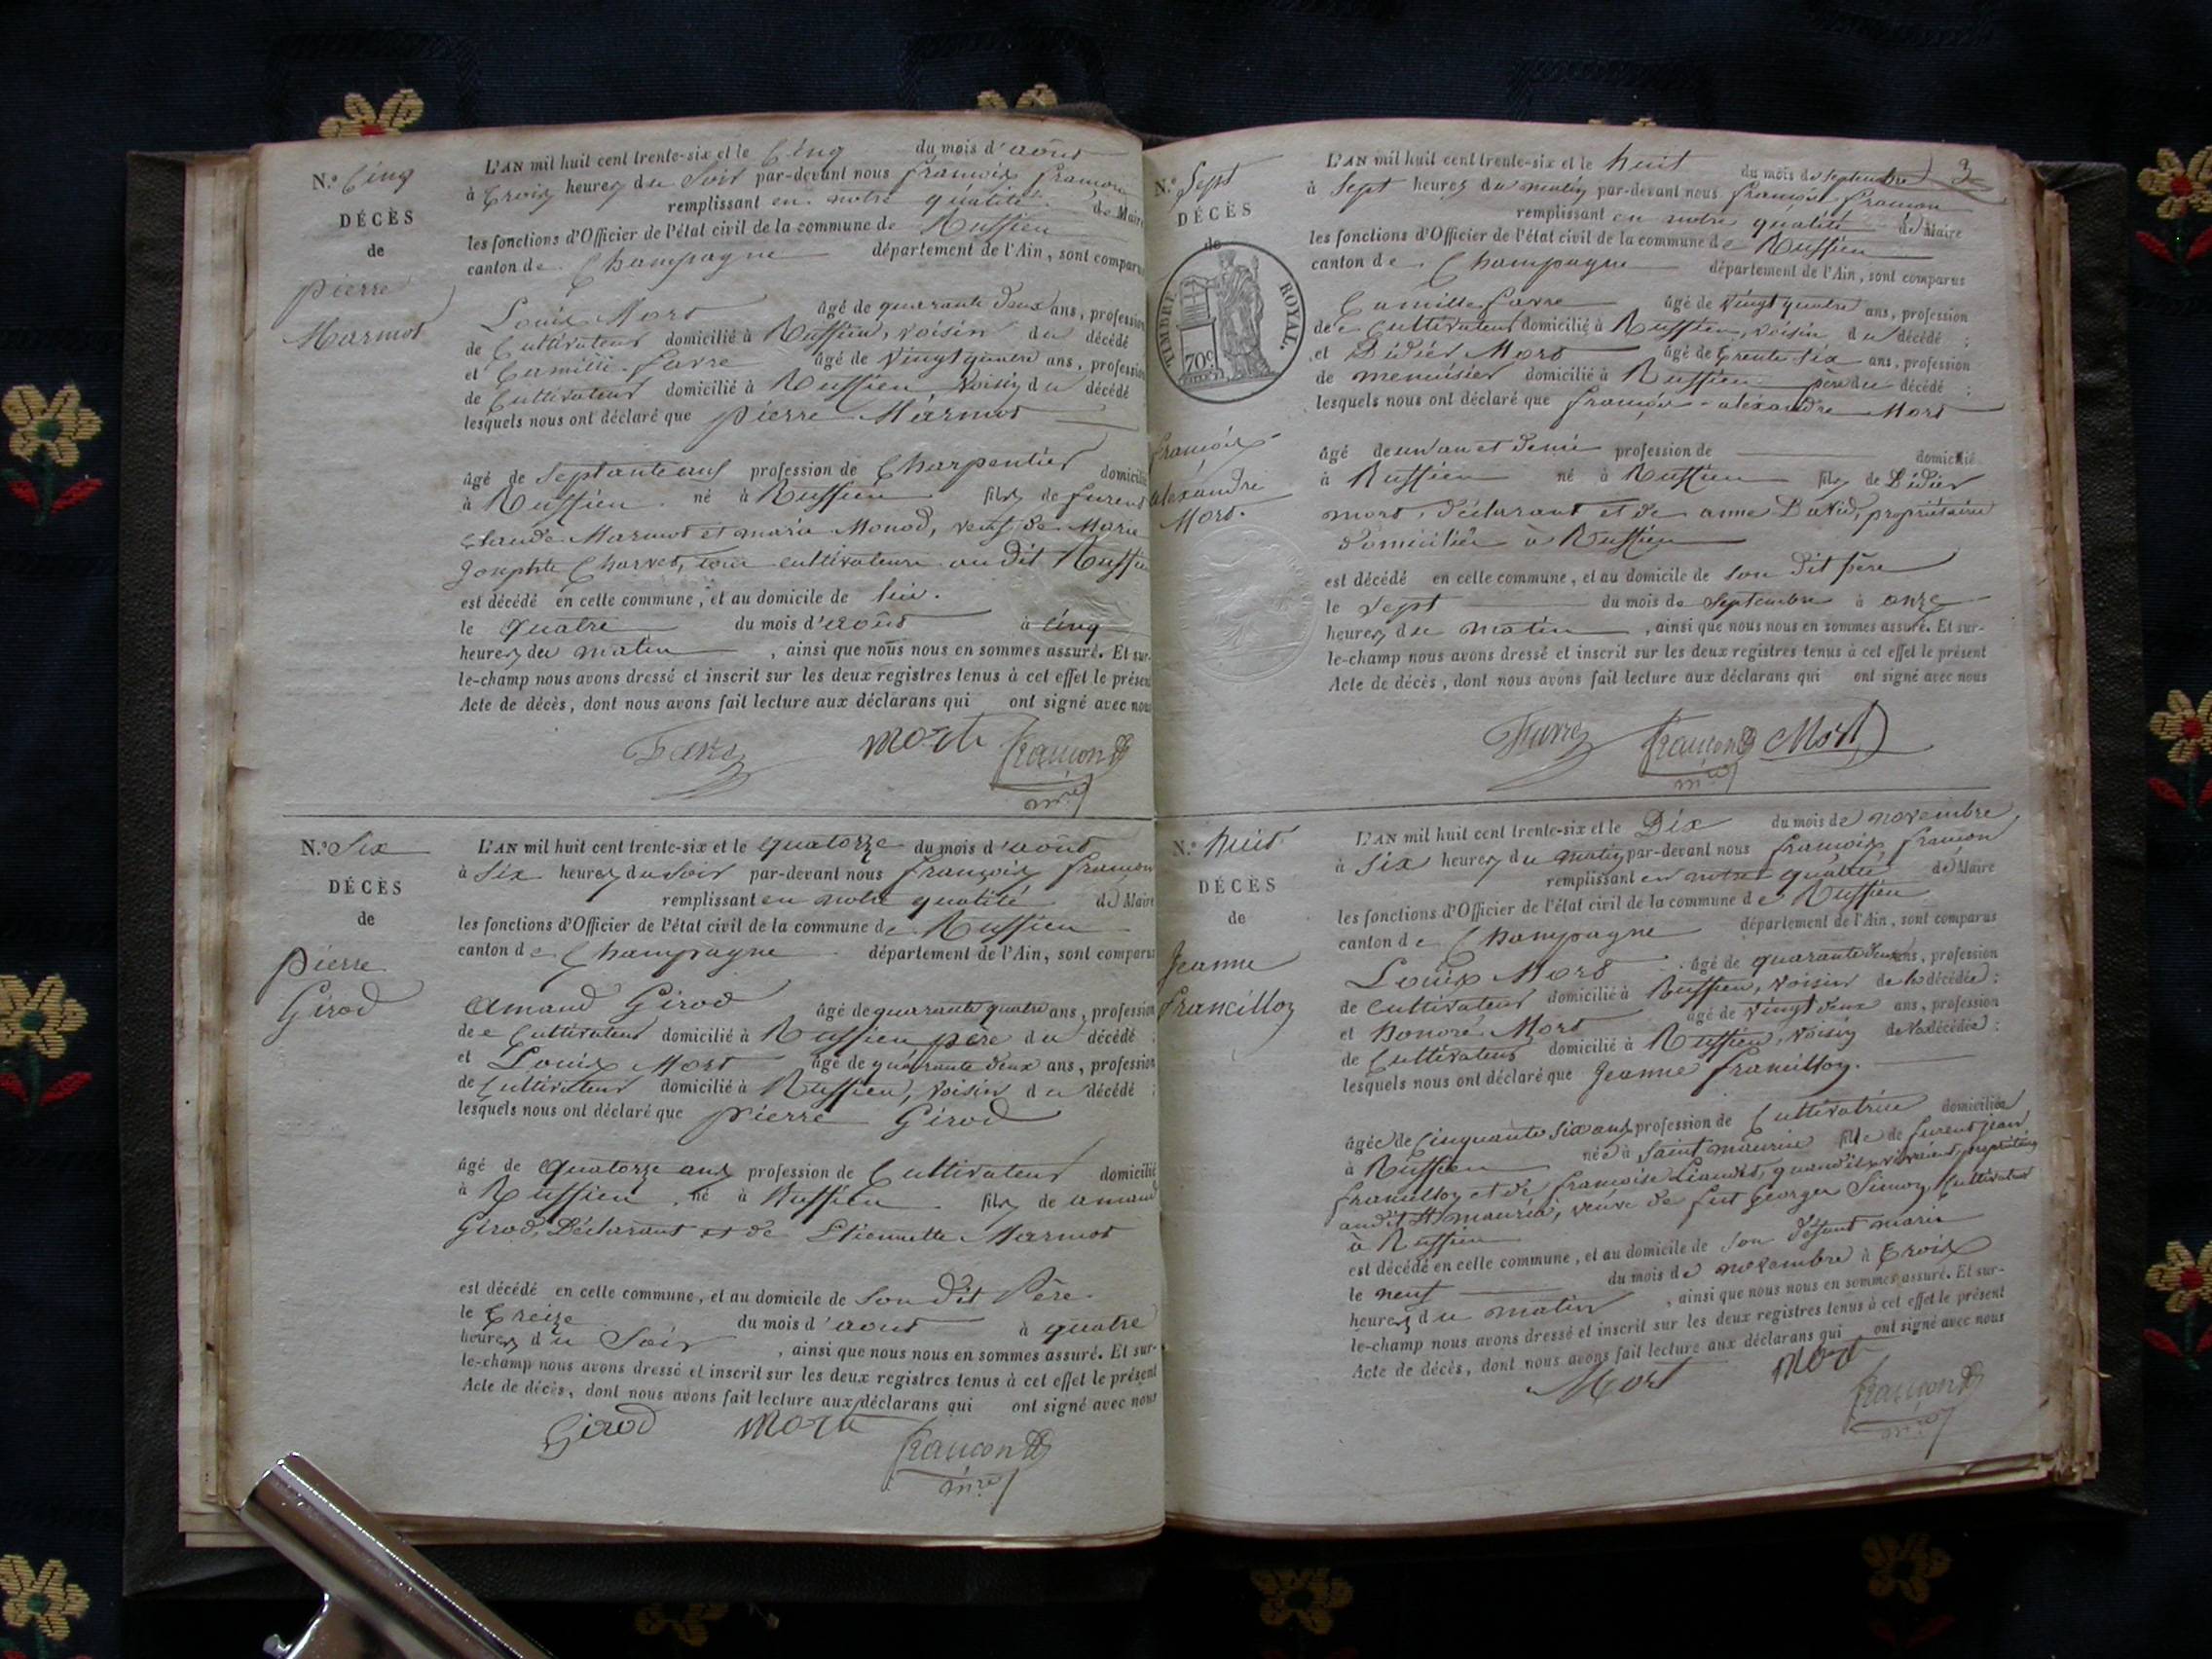 N.º Cinq
DÉCÈS
de
Pierre
Marmot
L'AN mil huit cent trente-six et le Cinq du mois d'août
à trois heures du Soir par-devant nous françois francon
remplissant en notre qualité de Maire
les fonctions d'Officier de l'état civil de la commune de Ruffieu
canton de Champagne département de l'Ain, sont comparus
Louis Mort âgé de quarante deux ans, profession
de Cultivateur domicilié à Ruffieu, voisin du décédé
et Camille favre âgé de vingt quatre ans, profession
de Cultivateur domicilié à Ruffieu voisin du décédé
lesquels nous ont déclaré que pierre Marmot
âgé de septante ans profession de Charpentier domicilié
à Ruffieu né à Ruffieu fils de furent
Claude Marmot et marie Monod, veuf de Marie
Josephte Charvet, cultivateurs au dit Ruffieu
est décédé en cette commune, et au domicile de lui.
le quatre du mois d'août à cinq
heures du matin, ainsi que nous nous en sommes assuré. Et sur-
le-champ nous avons dressé et inscrit sur les deux registres tenus à cet effet le présent
Acte de décès, dont nous avons fait lecture aux déclarans qui ont signé avec nous
Favre mort francon
mre
N.º Six
DÉCÈS
de
Pierre
Girod
L'AN mil huit cent trente-six et le quatorze du mois d'août
à Six heures du Soir par-devant nous françois francon
remplissant en notre qualité de Maire
les fonctions d'Officier de l'état civil de la commune de Ruffieu
canton de Champagne département de l'Ain, sont comparus
Amand Girod âgé de quarante quatre ans, profession
de Cultivateur domicilié à Ruffieu père du décédé
et Louis Mort âgé de quarante deux ans, profession
de Cultivateur domicilié à Ruffieu, voisin du décédé ;
lesquels nous ont déclaré que pierre Girod
âgé de quatorze ans profession de Cultivateur domicilié
à Ruffieu né à Ruffieu fils de amand
Girod, Déclarant et de Etiennette Marmot
est décédé en cette commune, et au domicile de Son dit Père.
le treize du mois d'août à quatre
heures du Soir, ainsi que nous nous en sommes assuré. Et sur-
le-champ nous avons dressé et inscrit sur les deux registres tenus à cet effet le présent
Acte de décès, dont nous avons fait lecture aux déclarans qui ont signé avec nous
Girod mort francon
mre
3
N.º Sept
DÉCÈS
de
TIMBRE ROYAL.
70c
françois
alexandre
Mort.
L'AN mil huit cent trente-six et le huit du mois de septembre
à Sept heures du matin par-devant nous françois francon
remplissant en notre qualité de Maire
les fonctions d'Officier de l'état civil de la commune de Ruffieu
canton de Champagne département de l'Ain, sont comparus
Camille favre âgé de vingt quatre ans, profession
de Cultivateur domicilié à Ruffieu, voisin du décédé ;
et Didier Mort âgé de trente six ans, profession
de menuisier domicilié à Ruffieu père du décédé ;
lesquels nous ont déclaré que françois-alexandre Mort
âgé de un an et demi profession de domicilié
à Ruffieu né à Ruffieu fils de Didier
mort, déclarant et de anne David, propriétaires
domiciliés à Ruffieu
est décédé en cette commune, et au domicile de Son dit père
le Sept du mois de Septembre à onze
heures du matin, ainsi que nous nous en sommes assuré. Et sur-
le-champ nous avons dressé et inscrit sur les deux registres tenus à cet effet le présent
Acte de décès, dont nous avons fait lecture aux déclarans qui ont signé avec nous
Favre francon Mort
mre
N.º huit
DÉCÈS
de
Jeanne
francillon
L'AN mil huit cent trente-six et le Dix du mois de novembre
à Six heures du matin par-devant nous françois francon
remplissant en notre qualité de Maire
les fonctions d'Officier de l'état civil de la commune de Ruffieu
canton de Champagne département de l'Ain, sont comparus
Louis Mort âgé de quarante deux ans, profession
de Cultivateur domicilié à Ruffieu, voisin de la décédée ;
et honoré Mort âgé de vingt deux ans, profession
de Cultivateur domicilié à Ruffieu, voisin de la décédée ;
lesquels nous ont déclaré que Jeanne francillon.
âgée de Cinquante six ans profession de Cultivatrice domiciliée
à Ruffieu née à Saint maurice fille de furent jean
francillon et de françoise Liaudet, quand ils vivaient, propriétaires
audit St maurice, veuve de fut georges Simon, Cultivateur
à Ruffieu
est décédé en cette commune, et au domicile de Son défunt marie
le neuf du mois de novembre à trois
heures du matin, ainsi que nous nous en sommes assuré. Et sur-
le-champ nous avons dressé et inscrit sur les deux registres tenus à cet effet le présent
Acte de décès, dont nous avons fait lecture aux déclarans qui ont signé avec nous
Mort mort francon
mre